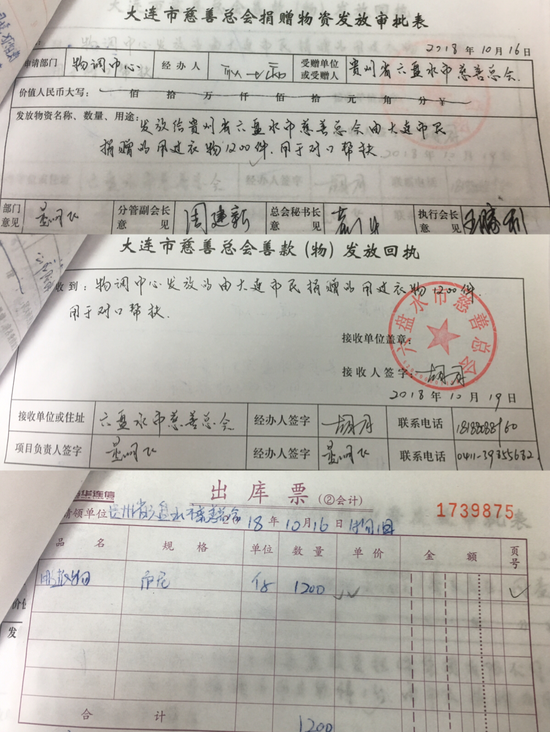 大连市慈善总会捐赠物资发放审批表
2018年10月16日
申请部门 物调中心 经办人 受赠单位或受赠人 贵州省六盘水市慈善总会
价值人民币大写: 佰 拾 万 仟 佰 拾 元 角 分 ¥
发放物资名称、数量、用途:
发放给贵州省六盘水市慈善总会由大连市民
捐赠的用过衣物1200件.用于对口帮扶
部门意见 分管副会长意见 周建新 总会秘书长意见 执行会长意见
大连市慈善总会善款(物)发放回执
收到:物调中心发放的由大连市民捐赠的用过衣物1200件.
用于对口帮扶.
六盘水市慈善总会
接收单位盖章:
接收人签字: 胡月
2018年10月19日
接收单位或住址 六盘水市慈善总会 经办人签字 胡月 联系电话
项目负责人签字 经办人签字 联系电话 0411-39855632
出库票 (②会计) 1739875
请领单位 贵州省六盘水市慈善总会 18年10月16日
品名 规格 单位 数量 单价 金额 页号
件 1200
合计 1200